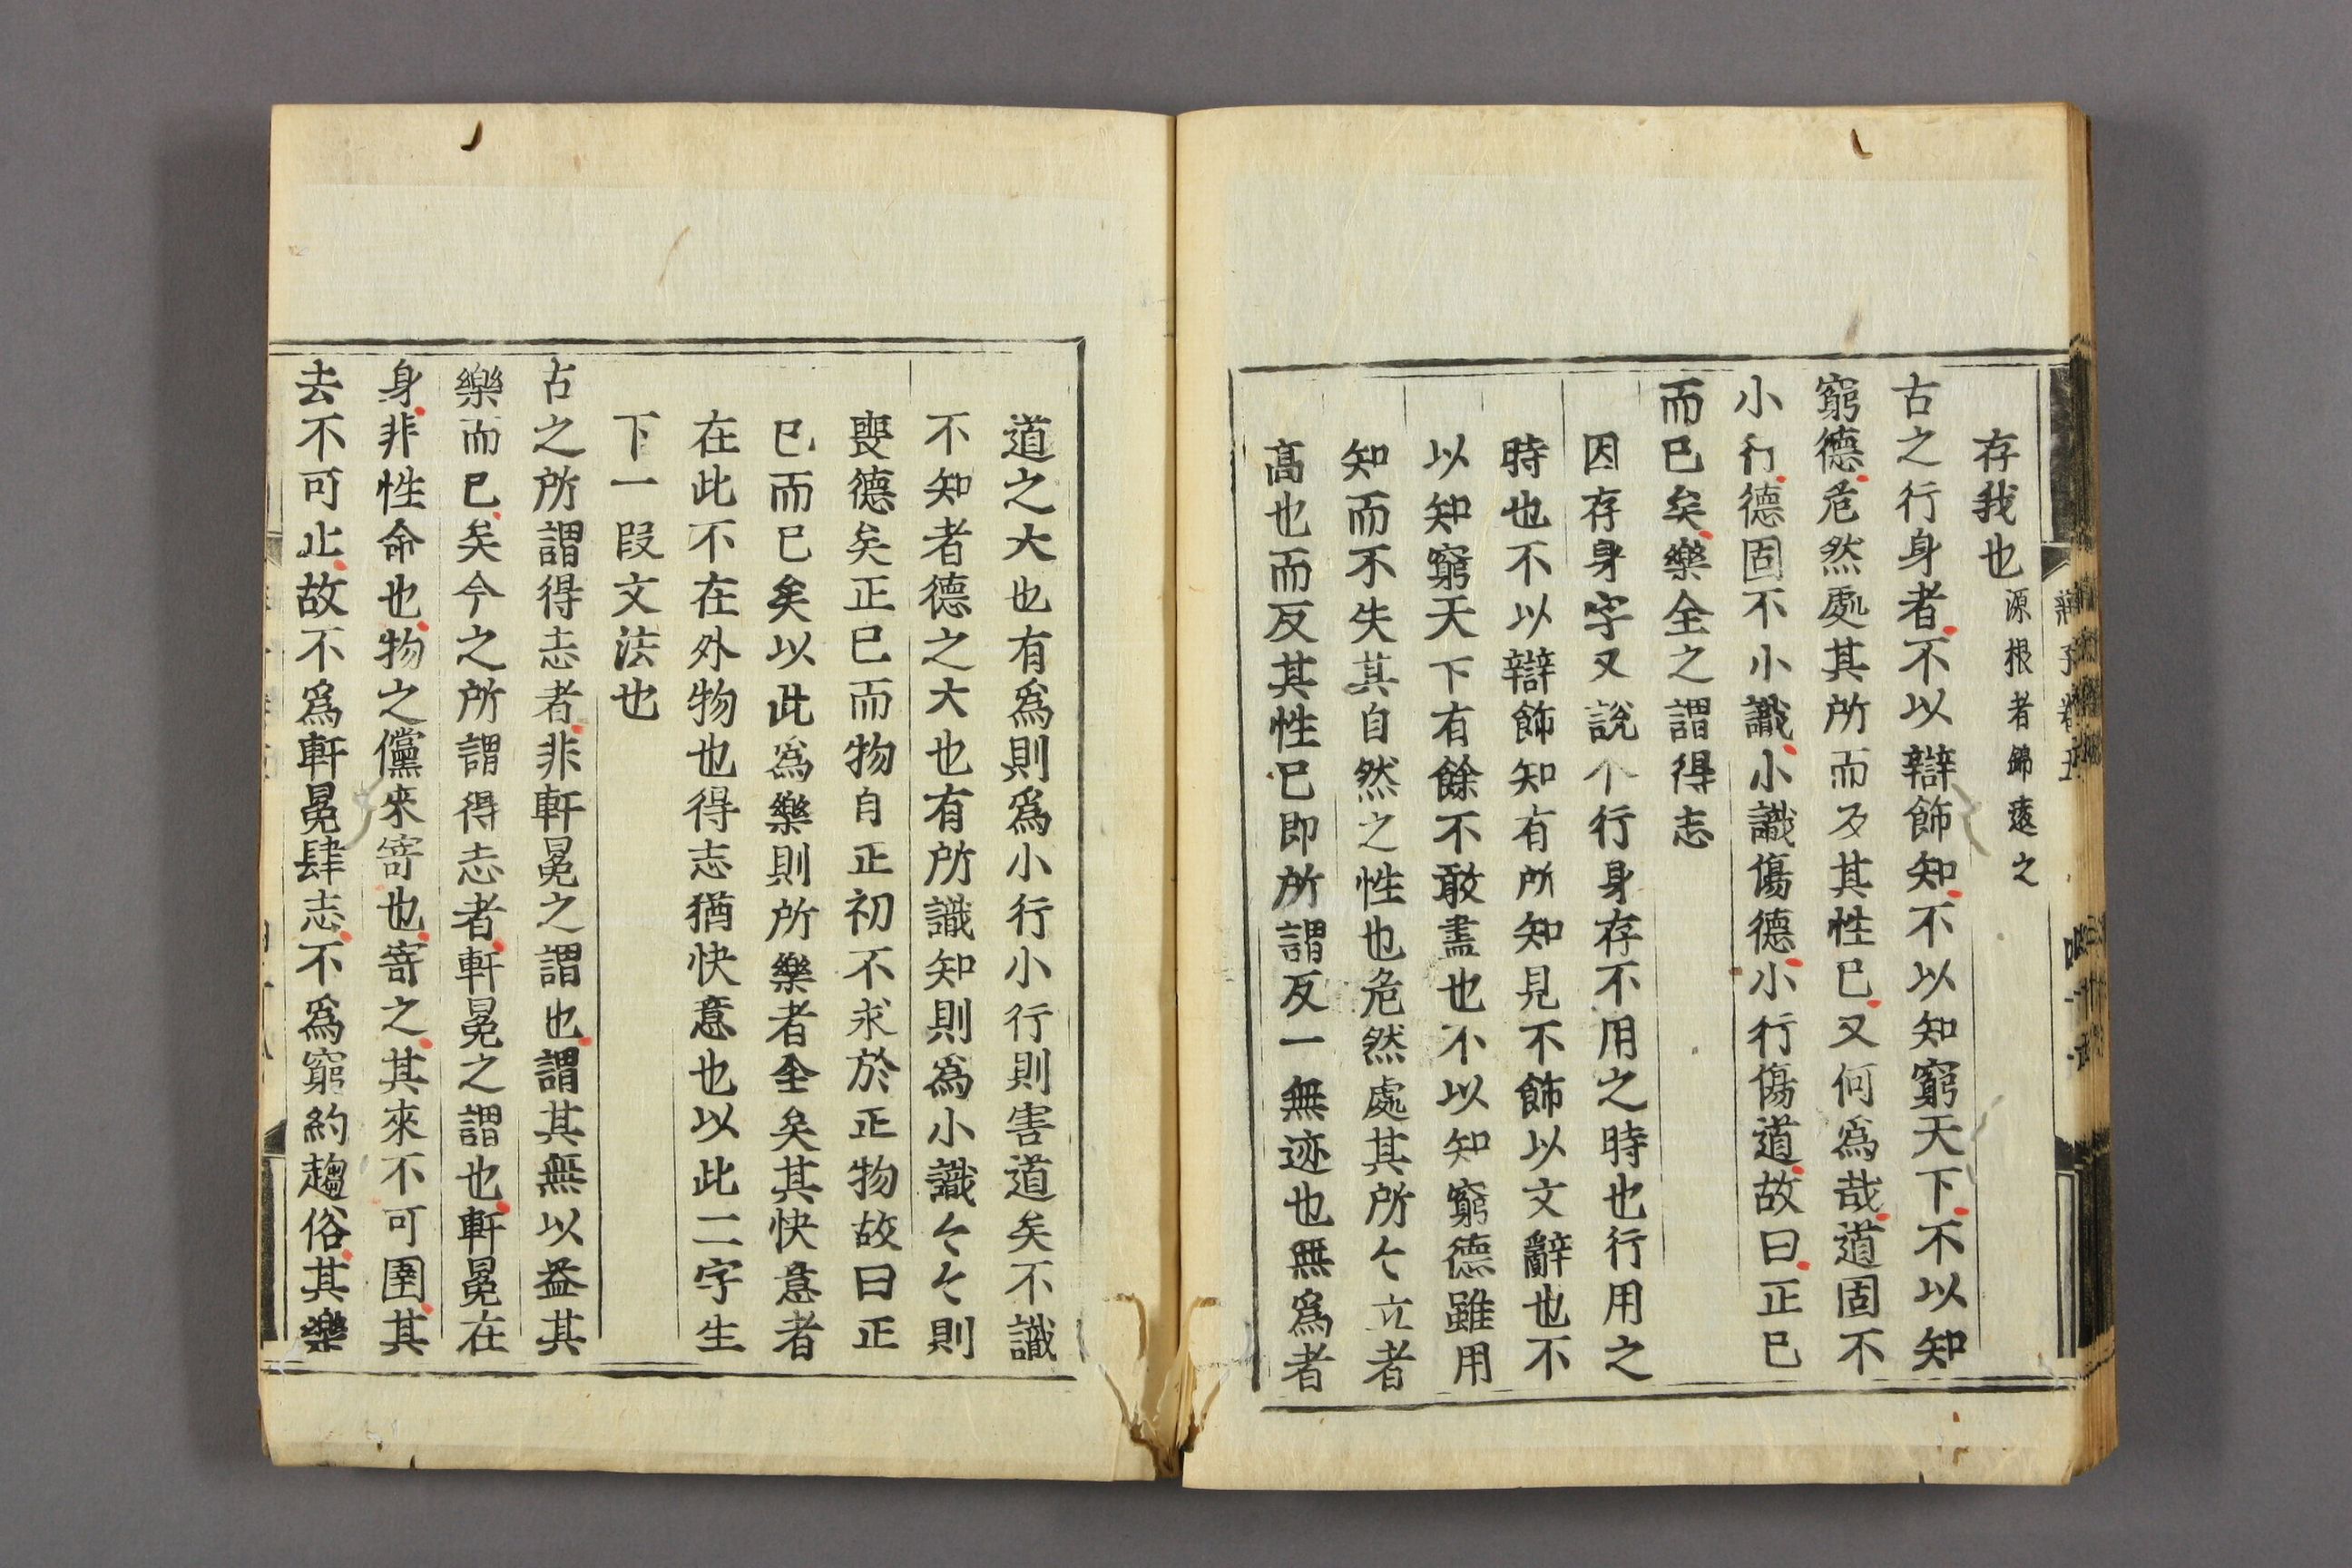 存我也源根者歸遠之
古之行身者不以辯飾知不以知窮天下不以知
窮德危然處其所而反其性已又何爲哉道固不
小行德固不小識小識傷德小行傷道故曰正已
而已矣樂全之謂得志
因存身字又說个行身存不用之時也行用之
時也不以辯飾知有所知見不飾以文辭也不
以知窮天下有餘不敢盡也不以知窮德雖用
知而不失其自然之性也危然處其所〻立者
高也而反其性已即所謂反一無迹也無爲者
道之大也有爲則爲小行小行則害道矣不識
不知者德之大也有所識知則爲小識〻〻則
喪德矣正已而物自正初不求於正物故曰正
已而已矣以此爲樂則所樂者全矣其快意者
在此不在外物也得志猶快意也以此二字生
下一段文法也
古之所謂得志者非軒冕之謂也謂其無以益其
樂而已矣今之所謂得志者軒冕之謂也軒冕在
身非性命也物之儻來寄也寄之其來不可圉其
去不可止故不爲軒冕肆志不爲窮約趨俗其樂